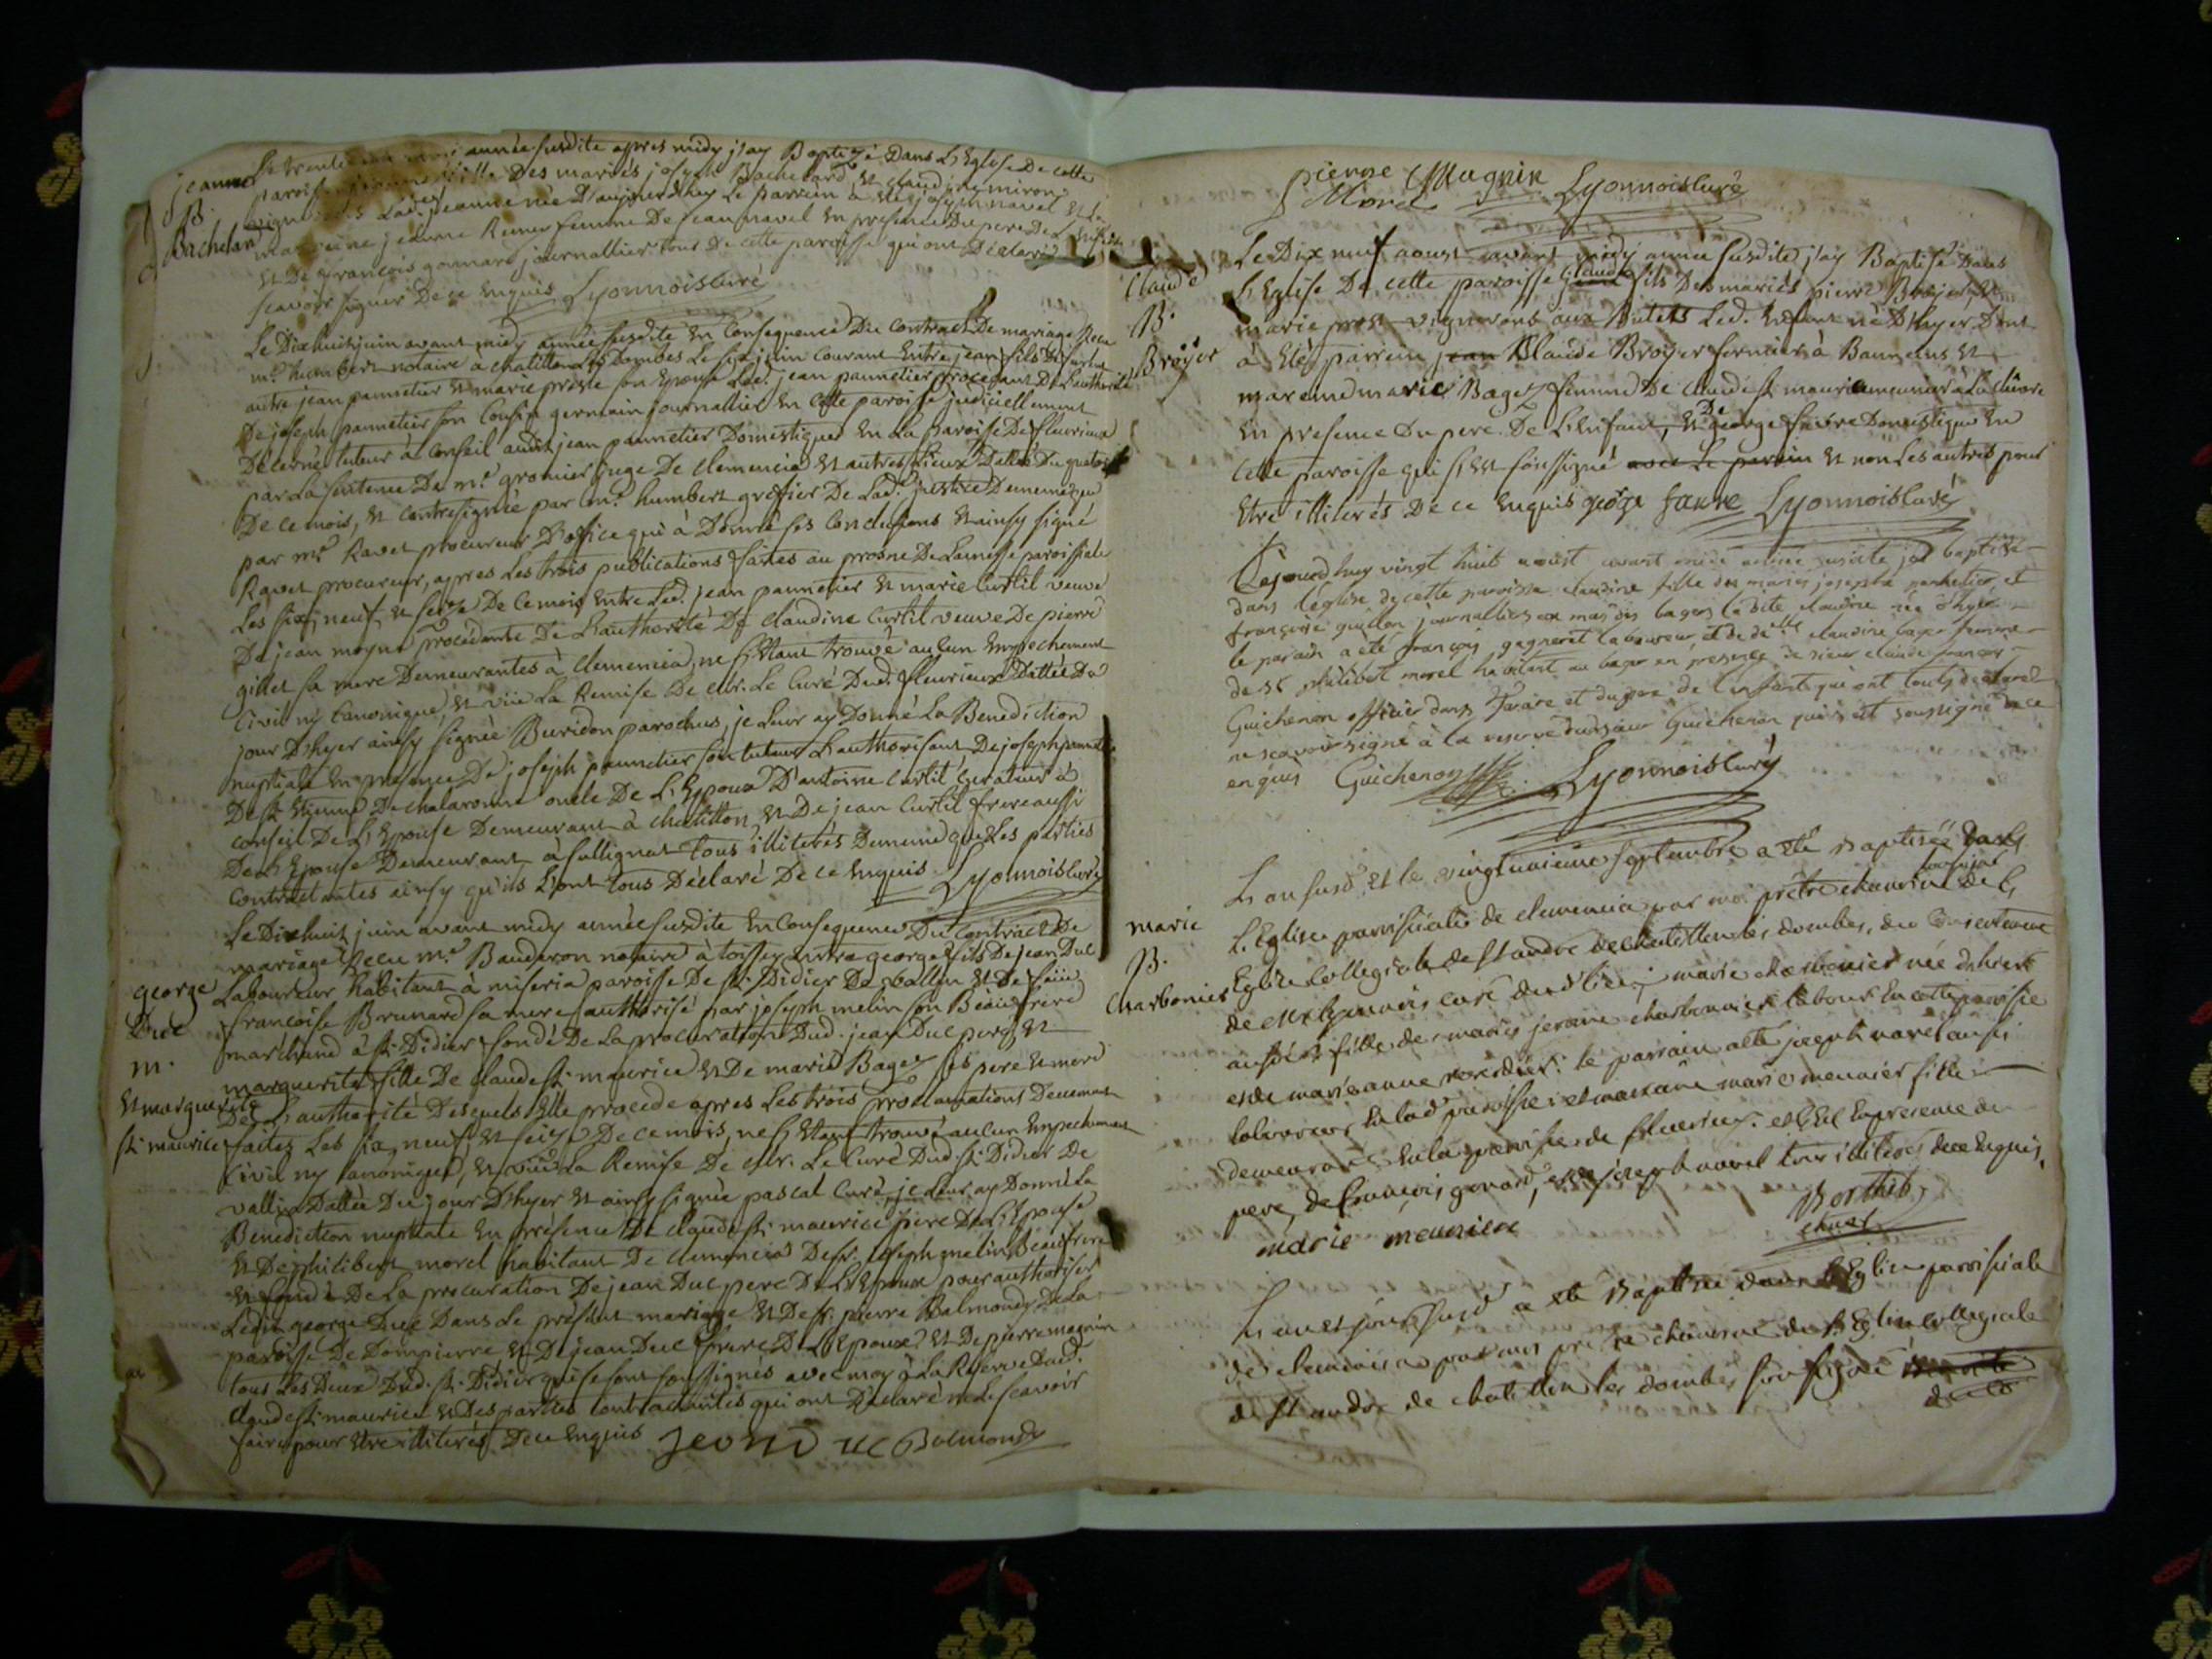 jeanne
B.
Bachelard
année susdite apres midy j'ay Baptizé Dans L'Eglise De cette
Des mariés joseph Bachelard Et claudine miron
jeanne née D'aujourd'huy Le parrein à été joseph navel Et La
marreine jeanne Remy femme De jean navel En presence Du pere De L'enfant
Et De françois gonnard journallier tous De cette paroisse qui ont Déclaré
scavoir signer De ce Enquis Lyonnois curé
Le Dix huit juin avant midy année susdite En Consequence Du contract De mariage Receu
mre humbert notaire à chatillon Les dombes Le six juin courant Entre jean fils De
autre jean pannetier Et marie preste son Epouse Led. jean pannetier procedant De L'authorité
De joseph pannetier son Cousin germain journallier En cette paroisse judiciellement
Décerné tuteur à Conseil audit jean pannetier Domestique En La paroisse De fleurieux
par La sentence De mre gromier juge De clemencia Et autres Lieux Dattée Du quatorze
De ce mois, Et contresignée par mre humbert greffier De Lad. justice De meme que
par mre Ravet procureur D'office qui à Donné ses Conclusions Et ainsy signé
Ravet procureur, apres Les trois publications faites au prosne De La messe paroissiale
Les six, neuf, Et seize De ce mois Entre Led. jean pannetier Et marie Curtil veuve
De jean moyne procedante De L'authorité De claudine Curtil veuve De pierre
gillet sa mere Demeurantes à clemencia, ne s'Etant trouvé aucun Empechement
Civil ny Canonique, Et vüe La Remise De mr. Le Curé Dud. fleurieux Dattée Du
jour D'hyer ainsy signée Buridon parochus, je Leur ay Donné La Benediction
nuptiale En presence De joseph pannetier son tuteur L'authorisant De joseph pannetier
De st Etienne De chalaronne oncle De L'Epoux D'antoine Curtil Curateur à
conseil De L'Epouse Demeurant à chatillon, Et De jean Curtil frere aussi
De L'Epouse Demeurant à sullignat tous illiterés De meme que Les parties
Contractantes ainsy qu'ils L'ont tous Déclaré De ce Enquis Lyonnois curé
george
Duc
m.
Et marguerite
st. maurice
Le Dix huit juin avant midy année susdite En Consequence Du Contract De
mariage Receu mre Bauderon notaire à toissey Entre george fils De jean Duc
Laboureur habitant à miseria paroisse De st. Didier De vallin Et De feüe
francoise Brunard sa mere authorisé par joseph melin son Beaufrere
marchand à st. Didier fondé De La procuration Dud. jean Duc pere, Et
marguerite fille De claude st. maurice Et De marie Bagez ses pere Et mere
De L'authorité Desquels Elle procede apres Les trois proclamations Deuement
faites Les six, neuf, Et seize De ce mois, ne s'Etant trouvé aucun Empechement
Civil ny Canonique, Et vüe La Remise De mr. Le Curé Dud. st. Didier De
vallin Dattée Du jour D'hyer Et ainsy signée pascal Curé, je Leur ay Donné La
Benediction nuptiale En presence De claude st. maurice pere De L'Epouse
Et De philibert morel habitant De clemencia De sr. joseph melin Beaufrere
Et fondé De La procuration De jean Duc pere De L'Epoux pour authoriser
Ledit george Duc Dans Le présent mariage Et De sr. pierre Balmondy De La
paroisse De Dompierre Et De jean Duc frere De L'Epoux Et De pierre magnin
tous Les Deux Dud. st. Didier qui se sont soussignés avec moy à La Reserve Dud.
Claude st. maurice Et Des parties contractantes qui ont Déclaré ne Le scavoir
faire pour Etre illiterés De ce Enquis jean duc Balmondy
pierre Magnin
Morel Lyonnois curé
Claude
B.
Broyer
Le Dix neuf aoust avant midy année susdite j'ay Baptisé Dans
L'Eglise De cette paroisse claude fils Des mariés pierre Broyer Et
marie prost vignerons aux Butets Led. Enfant né D'hyer Dont
à Eté parrein jean Claude Broyer fermier à Banneins Et
mareine marie Bagez femme De claude st. maurice meunier à La chivore
En presence Du pere De L'Enfant, Et De george favre Domestique En
Cette paroisse qui s'est soussigné avec Le parrein Et non Les autres pour
Etre illiterés De ce Enquis george favre Lyonnois curé
Cejourd'huy vingt huit aoust avant midi année susdite jai baptisé
dans l'eglise de cette paroisse claudine fille des mariés joseph pannetier et
françoise guillon journalliers au mas des bages la dite claudine née d'hyer
le parain a été françois gagneret laboureur et de delle claudine bager femme
de sr philibert morel habitant au bager en presence de sieur claude françois
Guichenon officier dans et du pere de l'enfant qui ont touts declaré
ne scavoir signé à la reserve dud sieur Guichenon qui s'est soussigné de ce
enquis Guichenon Lyonnois curé
marie
B.
Charbonier
L'an susd. et le vingt unieme septembre a eté Baptisée dans
L'Eglise paroissiale de clemencia par moi prêtre chanoine soussigné de L'
Eglise Collegiale de st andré de chatillon les dombes, du consentement
de mr Lyonnois curé dud. lieu, marie charbonier née d'hier
aussi fille des mariés jerome charbonnier laboureur En cette paroisse
et de marieanne verdier: le parrain a eté joseph navel aussi
laboureur En lad paroisse; et marraine marie meunier fille
demeurant En la paroisse de fleurieux. et En presence du
pere, de françois gonard, et de joseph navel tous illiterés de ce Enquis,
marie meunier Borthel
chne
L'an et jour susd a eté Baptisé dans L'Eglise paroissiale
de clemencia par moi prêtre chanoine de L'Eglise collegiale
de st andré de chatillon les dombes soussigné